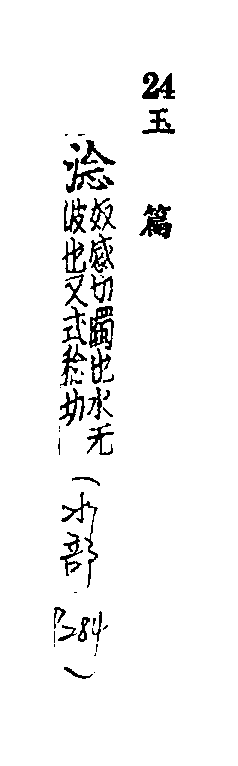 24 玉篇
淰 奴感切濁也水无
波也又式稔切
(水部 P284)